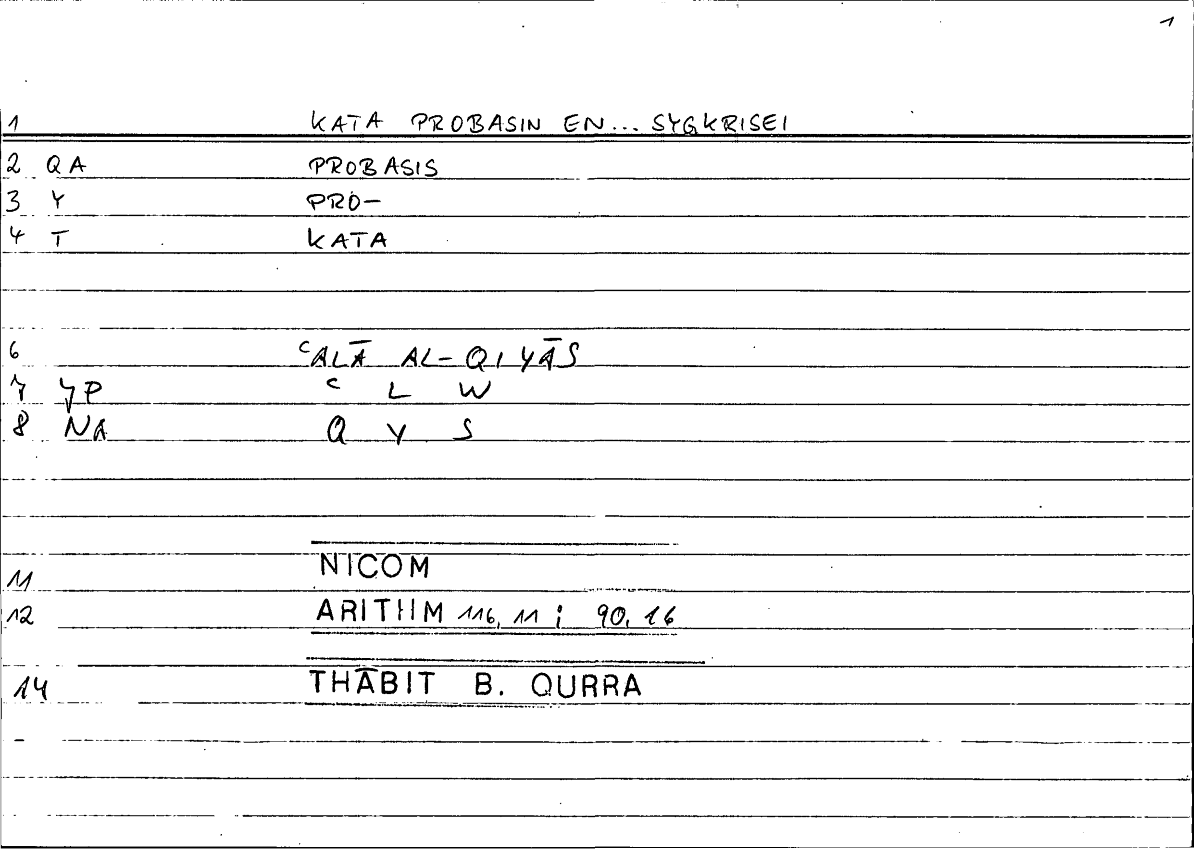 1
1 KATA PROBASIN EN... SYGKRISEI
2 QA PROBASIS
3 Y PRO-
4 T KATA
6 ᶜALĀ AL-QIYĀS
7 YP ᶜ L W
8 NA Q Y S
11 NICOM
12 ARITHM 116, 11 ; 90, 16
14 THĀBIT B. QURRA